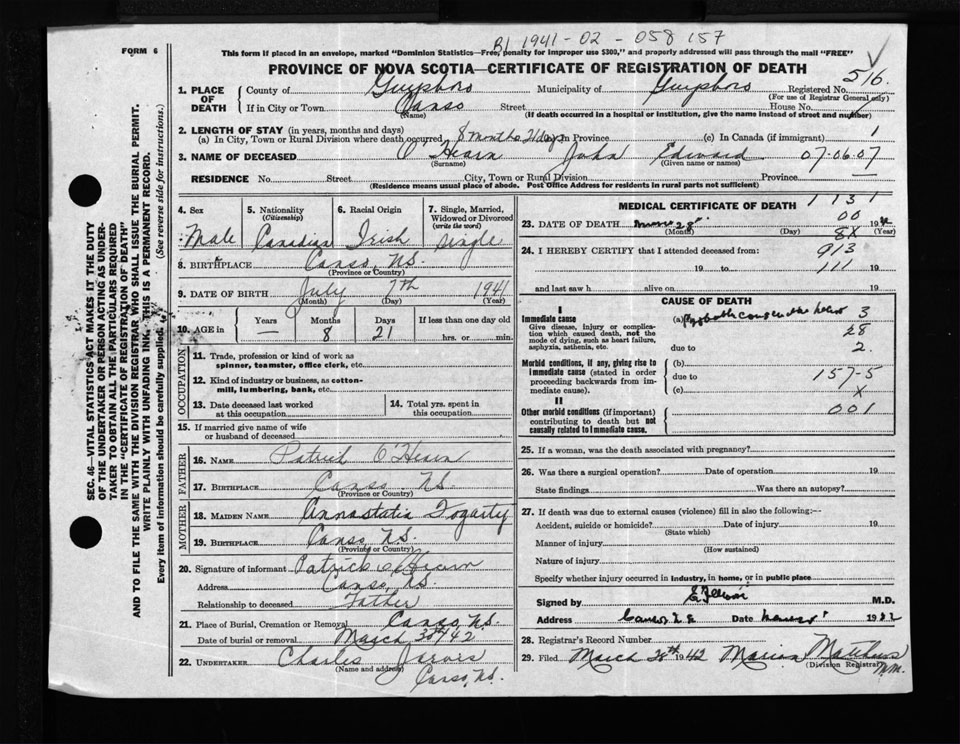 BJ 1941-02-058157
FORM 6
This form if placed in an envelope, marked "Dominion Statistics—Free, penalty for improper use $300," and properly addressed will pass through the mail "FREE"
PROVINCE OF NOVA SCOTIA—CERTIFICATE OF REGISTRATION OF DEATH
516
1. PLACE OF DEATH
County of Guysboro Municipality of Guysboro Registered No.
(For use of Registrar General only)
If in City or Town Canso Street House No.
(Name) (If death occurred in a hospital or institution, give the name instead of street and number)
2. LENGTH OF STAY (in years, months and days)
(a) In City, Town or Rural Division where death occurred 8 months 21 days In Province (c) In Canada (if immigrant) 1
3. NAME OF DECEASED O'Hearn John Edward 07-06-07
(Surname) (Given name or names)
RESIDENCE No. Street City, Town or Rural Division Province
(Residence means usual place of abode. Post Office Address for residents in rural parts not sufficient)
4. Sex
Male
5. Nationality (Citizenship)
Canadian
6. Racial Origin
Irish
7. Single, Married, Widowed or Divorced (write the word)
Single
8. BIRTHPLACE Canso, N.S.
(Province or Country)
9. DATE OF BIRTH July 7th 1941
(Month) (Day) (Year)
10. AGE in Years Months Days If less than one day old
— 8 21 hrs. or min.
OCCUPATION
11. Trade, profession or kind of work as spinner, teamster, office clerk, etc.
12. Kind of industry or business, as cotton-mill, lumbering, bank, etc.
13. Date deceased last worked at this occupation
14. Total yrs. spent in this occupation
15. If married give name of wife or husband of deceased
FATHER
16. NAME Patrick O'Hearn
17. BIRTHPLACE Canso N.S.
(Province or Country)
MOTHER
18. MAIDEN NAME Annastatia Fogarty
19. BIRTHPLACE Canso N.S.
(Province or Country)
20. Signature of informant Patrick O'Hearn
Address Canso, N.S.
Relationship to deceased Father
21. Place of Burial, Cremation or Removal Canso, N.S.
Date of burial or removal March 30th/42
22. UNDERTAKER Charles Jarvis
(Name and address) Canso, N.S.
MEDICAL CERTIFICATE OF DEATH
1131
00
23. DATE OF DEATH 28 19
(Month) (Day) 8X (Year)
24. I HEREBY CERTIFY that I attended deceased from: 913
19 to 111 19
and last saw h alive on 19
CAUSE OF DEATH
Immediate cause
Give disease, injury or complication which caused death, not the mode of dying, such as heart failure, asphyxia, asthenia, etc.
(a) Probable 3
28
due to 2.
Morbid conditions, if any, giving rise to immediate cause (stated in order proceeding backwards from immediate cause).
(b)
due to 157-5
(c) X
II
Other morbid conditions (if important) contributing to death but not causally related to immediate cause.
001
25. If a woman, was the death associated with pregnancy?
26. Was there a surgical operation? Date of operation 19
State findings Was there an autopsy?
27. If death was due to external causes (violence) fill in also the following:—
Accident, suicide or homicide? Date of injury 19
(State which)
Manner of injury
(How sustained)
Nature of injury
Specify whether injury occurred in industry, in home, or in public place
Signed by M.D.
Address Canso N.S Date 1942
28. Registrar's Record Number
29. Filed March 28th 1942 Marion Matthews
(Division Registrar)
SEC. 46—VITAL STATISTICS ACT MAKES IT THE DUTY OF THE UNDERTAKER OR PERSON ACTING AS UNDERTAKER TO OBTAIN ALL THE PARTICULARS REQUIRED IN THE "CERTIFICATE OF REGISTRATION OF DEATH" AND TO FILE THE SAME WITH THE DIVISION REGISTRAR WHO SHALL ISSUE THE BURIAL PERMIT.
WRITE PLAINLY WITH UNFADING INK. THIS IS A PERMANENT RECORD.
Every item of information should be carefully supplied. (See reverse side for instructions.)